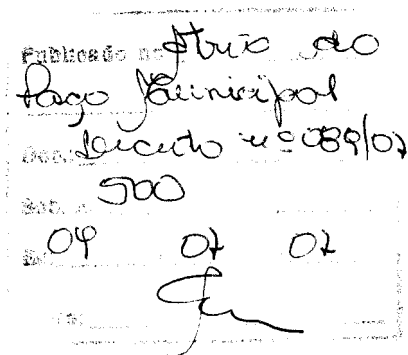 Publicado no Átrio do
Paço Municipal
Decreto nº 089/07
Sob. n. 500
04 07 07